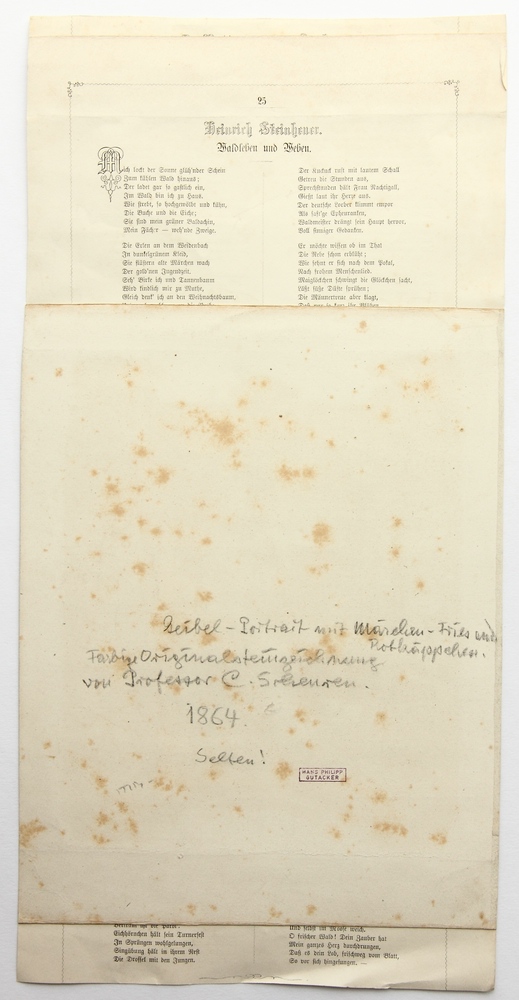 25
Heinrich Steinheuer.
Waldleben und Weben.
Mich lockt der Sonne glüh'nder Schein
Zum kühlen Wald hinaus;
Der ladet gar so gastlich ein,
Im Wald bin ich zu Haus.
Wie strebt, so hochgewölbt und kühn,
Die Buche und die Eiche;
Sie sind mein grüner Baldachin,
Mein Fächer — weh'nde Zweige.
Die Erlen an dem Weidenbach
Im dunkelgrünem Kleid,
Sie flüstern alte Märchen wach
Der gold'nen Jugendzeit.
Seh' Birke ich und Tannenbaum
Wird kindlich mir zu Muthe,
Gleich denk' ich an den Weihnachtsbaum,
Der Kuckuck ruft mit lautem Schall
Herren die Stunden aus,
Sprechstunden hält Frau Nachtigall,
Gießt laut ihr Herz aus.
Der deutsche Lorbeer klimmt empor
Als saft'ge Epheuranken,
Waldmeister drängt sein Haupt hervor,
Voll sinniger Gedanken.
Er möchte wissen ob im Thal
Die Rebe schon erblüht;
Wie sehnt er sich nach dem Pokal,
Nach frohem Menschenlied.
Maiglöckchen schwingt die Glöckchen sacht,
Läßt süße Düfte sprühen;
Die Männertreue aber klagt,
Geibel-Portrait mit Märchen-Fries und
Rotkäppchen.
Farbige Originalsteinzeichnung
von Professor C. Scheuren.
1864.
Selten!
HANS PHILIPP
GUTACKER
Eichhörnchen hält sein Turnerfest
In Sprüngen wohlgelungen,
Singübung hält in ihrem Nest
Die Drossel mit den Jungen.
Und selbst im Moose weich.
O frischer Wald! Dein Zauber hat
Mein ganzes Herz durchdrungen,
Daß es dein Lob, frischweg vom Blatt,
So vor sich hingesungen. —